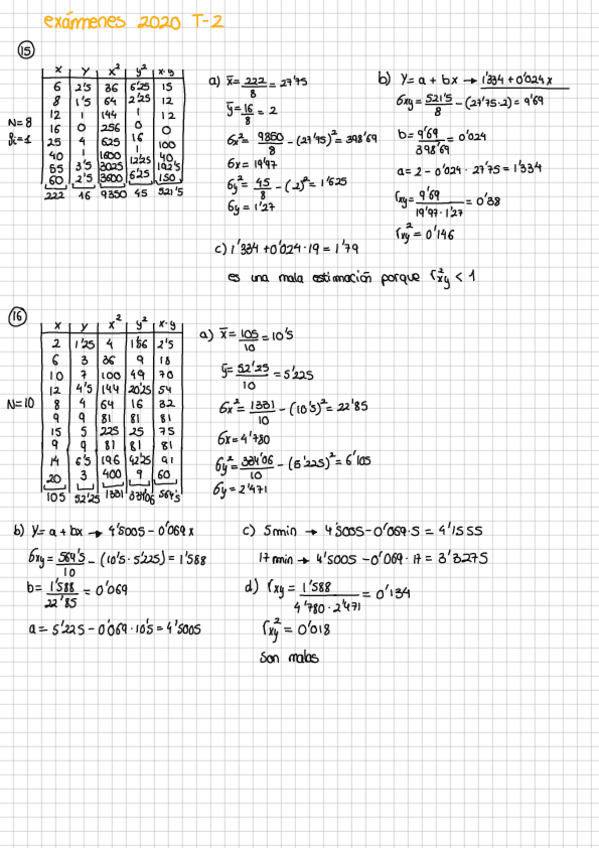 exámenes 2020 T-2
15
x y x² y² x·y
6 2'5 36 6'25 15
8 1'5 64 2'25 12
12 1 144 1 12
16 0 256 0 0
25 4 625 16 100
40 1 1600 1 40
55 3'5 3025 12'25 192'5
60 2'5 3600 6'25 150
222 16 9350 45 521'5
N=8
fi=1
a) x̄=222/8=27'75
ȳ=16/8=2
σx²=9350/8-(27'75)²=398'69
σx=19'97
σy²=45/8-(2)²=1'625
σy=1'27
b) y=a+bx→1'334+0'024x
σxy=521'5/8-(27'75·2)=9'69
b=9'69/398'69=0'024
a=2-0'024·27'75=1'334
rxy=9'69/19'97·1'27=0'38
r²xy=0'146
c) 1'334+0'024·19=1'79
es una mala estimación porque r²xy<1
16
x y x² y² x·y
2 1'25 4 1'56 2'5
6 3 36 9 18
10 7 100 49 70
12 4'5 144 20'25 54
8 4 64 16 32
9 9 81 81 81
15 5 225 25 75
9 9 81 81 81
14 6'5 196 42'25 91
20 3 400 9 60
105 52'25 1331 334'06 564'5
N=10
a) x̄=105/10=10'5
ȳ=52'25/10=5'225
σx²=1331/10-(10'5)²=22'85
σx=4'780
σy²=334'06/10-(5'225)²=6'105
σy=2'471
b) y=a+bx→4'5005-0'069x
σxy=564'5/10-(10'5·5'225)=1'588
b=1'588/22'85=0'069
a=5'225-0'069·10'5=4'5005
c) 5min→4'5005-0'069·5=4'1555
17min→4'5005-0'069·17=3'3275
d) rxy=1'588/4'780·2'471=0'134
r²xy=0'018
son malas